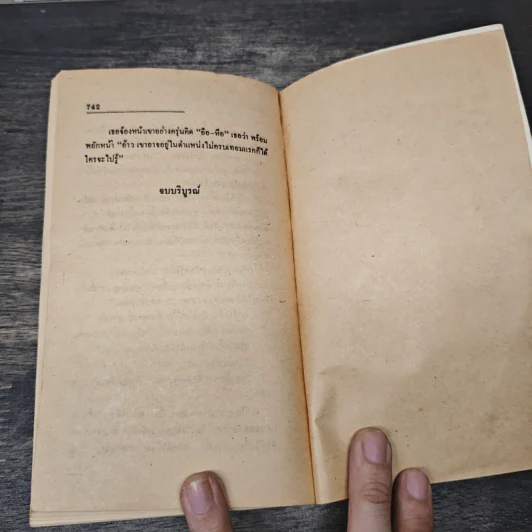 742
เธอจ้องหน้าเขาอย่างครุ่นคิด "ฮือ-หือ" เธอว่า พร้อม
พยักหน้า "อ้าว เขาอาจอยู่ในตำแหน่งไม่ครบเทอมแรกก็ได้
ใครจะไปรู้"
จบบริบูรณ์